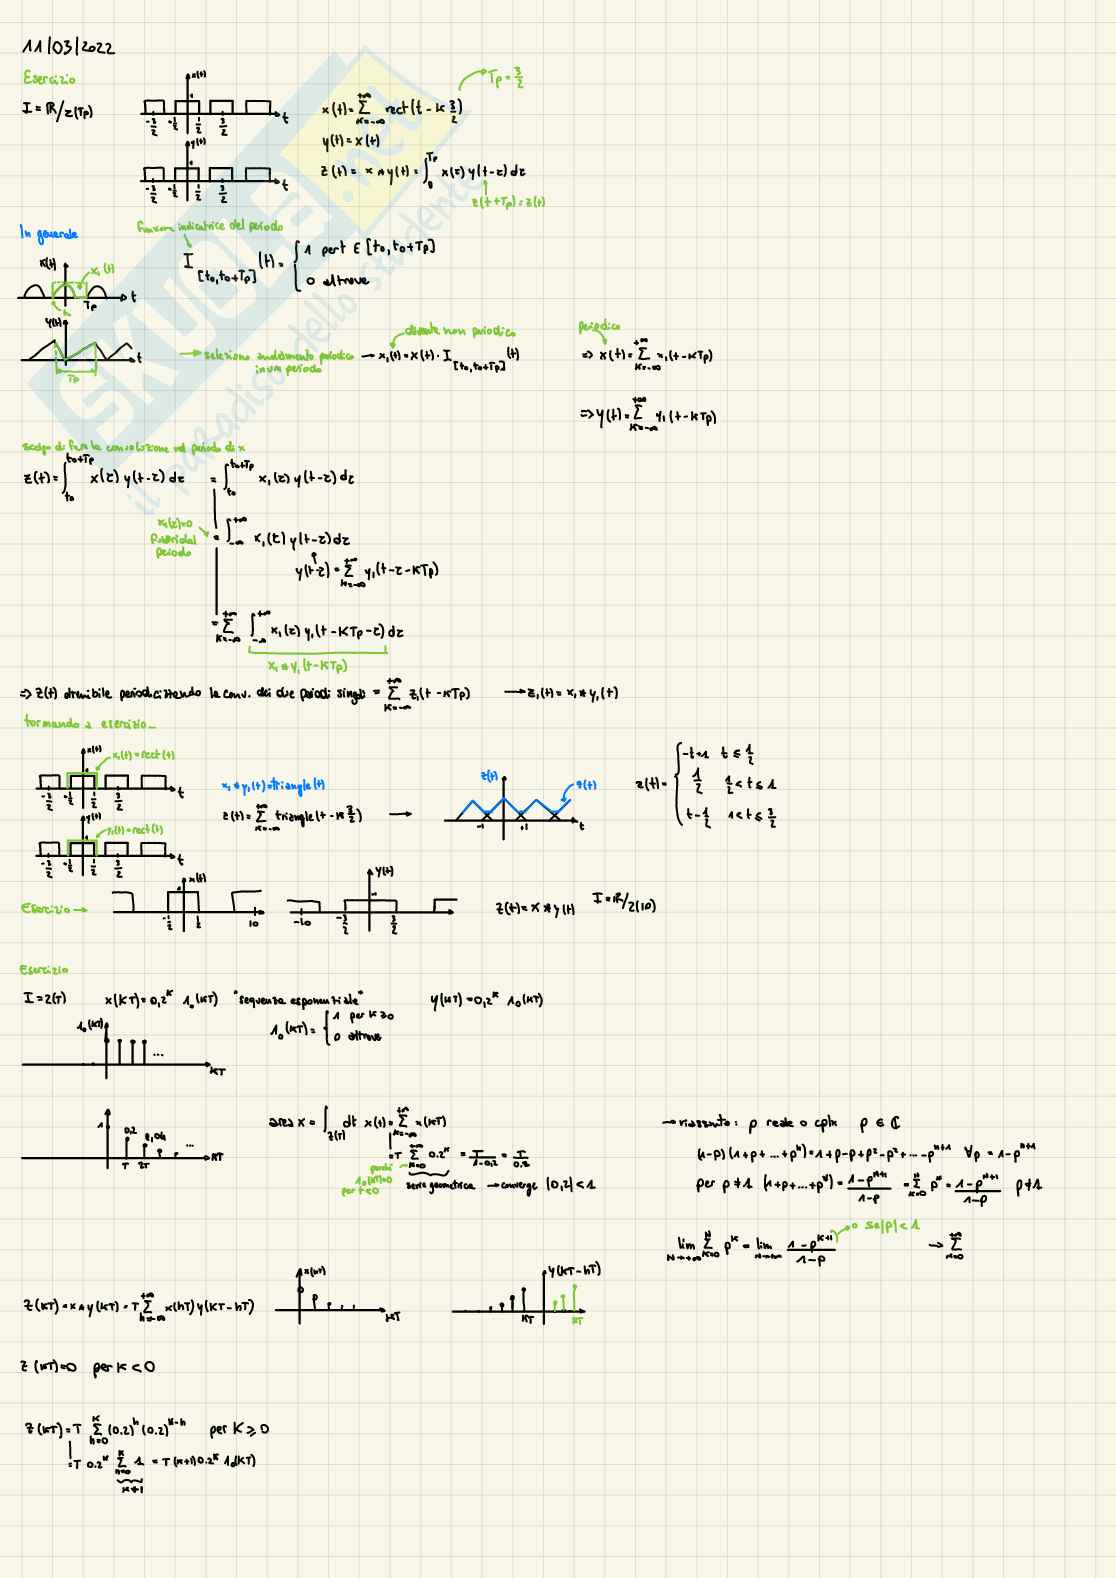 11/03/2022
Esercizio
I = ℝ/Z(Tp)
x(t)
1
-3/2 -1/2 1/2 3/2 t
x(t) = ∑_{K=-∞}^{+∞} rect(t - K 3/2)
Tp = 3/2
y(t) = x(t)
y(t)
1
-3/2 -1/2 1/2 3/2 t
z(t) = x * y(t) = ∫_0^{Tp} x(τ) y(t-τ) dτ
z(t+Tp) = z(t)
In generale
funzione indicatrice del periodo
I_{[t0,t0+Tp]}(t) = { 1 per t ∈ [t0, t0+Tp]
0 altrove
x(t) x₁(t)
Tp t
y(t)
Tp t
→ seleziono andamento periodico in un periodo → x₁(t) = x(t) · I_{[t0,t0+Tp]}(t)
diventa non periodica
periodico
⇒ x(t) = ∑_{K=-∞}^{+∞} x₁(t-KTp)
⇒ y(t) = ∑_{K=-∞}^{+∞} y₁(t-KTp)
scelgo di fare la convoluzione nel periodo di x
z(t) = ∫_{t0}^{t0+Tp} x(τ) y(t-τ) dτ = ∫_{t0}^{t0+Tp} x₁(τ) y(t-τ) dτ
x₁(τ)=0 fuori dal periodo
= ∫_{-∞}^{+∞} x₁(τ) y(t-τ) dτ
y(t-τ) = ∑_{K=-∞}^{+∞} y₁(t-τ-KTp)
= ∑_{K=-∞}^{+∞} ∫_{-∞}^{+∞} x₁(τ) y₁(t-KTp-τ) dτ
x₁ * y₁(t-KTp)
⇒ z(t) ottenibile periodicizzando la conv. dei due periodi singoli = ∑_{K=-∞}^{+∞} z₁(t-KTp) → z₁(t) = x₁ * y₁(t)
tornando a esercizio...
x(t) x₁(t) = rect(t)
-3/2 -1/2 1/2 3/2 t
y(t) y₁(t) = rect(t)
-3/2 -1/2 1/2 3/2 t
x₁ * y₁(t) = triangle(t)
z(t) = ∑_{K=-∞}^{+∞} triangle(t - K 3/2) →
z(t) z(t)
-1 +1 t
z(t) = { -t+1 t ≤ 1/2
1/2 1/2 < t ≤ 1
t - 1/2 1 < t ≤ 3/2
Esercizio →
x(t)
-1/2 1/2 10
y(t)
-10 -3/2 3/2
z(t) = x * y(t) I = ℝ/Z(10)
Esercizio
I = Z(T) x(KT) = 0,2^K 1₀(KT) "sequenza esponenziale" y(KT) = 0,2^K 1₀(KT)
1₀(KT) = { 1 per K ≥ 0
0 altrove
1₀(KT)
... KT
1 0,2 0,04 ...
T 2T KT
area x = ∫_{Z(T)} dt x(t) = ∑_{K=-∞}^{+∞} x(KT)
= T ∑_{K=0}^{+∞} 0.2^K = T/(1-0,2) = T/0.8
perché 1₀(KT)=0 per t<0
serie geometrica → converge |0,2| < 1
→ riassunto: p reale o cplx p ∈ ℂ
(1-p)(1+p+...+p^N) = 1+p-p+p²-p²+...-p^{N+1} ∀p = 1-p^{N+1}
per p ≠ 1 (1+p+...+p^N) = (1-p^{N+1})/(1-p) = ∑_{K=0}^{N} p^K = (1-p^{N+1})/(1-p) p ≠ 1
lim_{N→+∞} ∑_{K=0}^{N} p^K = lim_{N→+∞} (1-p^{K+1})/(1-p) → ∑_{K=0}^{+∞}
0 se |p| < 1
z(KT) = x * y(KT) = T ∑_{h=-∞}^{+∞} x(hT) y(KT-hT)
x(hT)
KT
y(KT-hT)
KT KT
z(KT) = 0 per K < 0
z(KT) = T ∑_{h=0}^{K} (0.2)^h (0.2)^{K-h} per K ≥ 0
= T 0.2^K ∑_{h=0}^{K} 1 = T(K+1) 0.2^K 1₀(KT)
K+1
SKUOLA.net
il paradiso dello studente